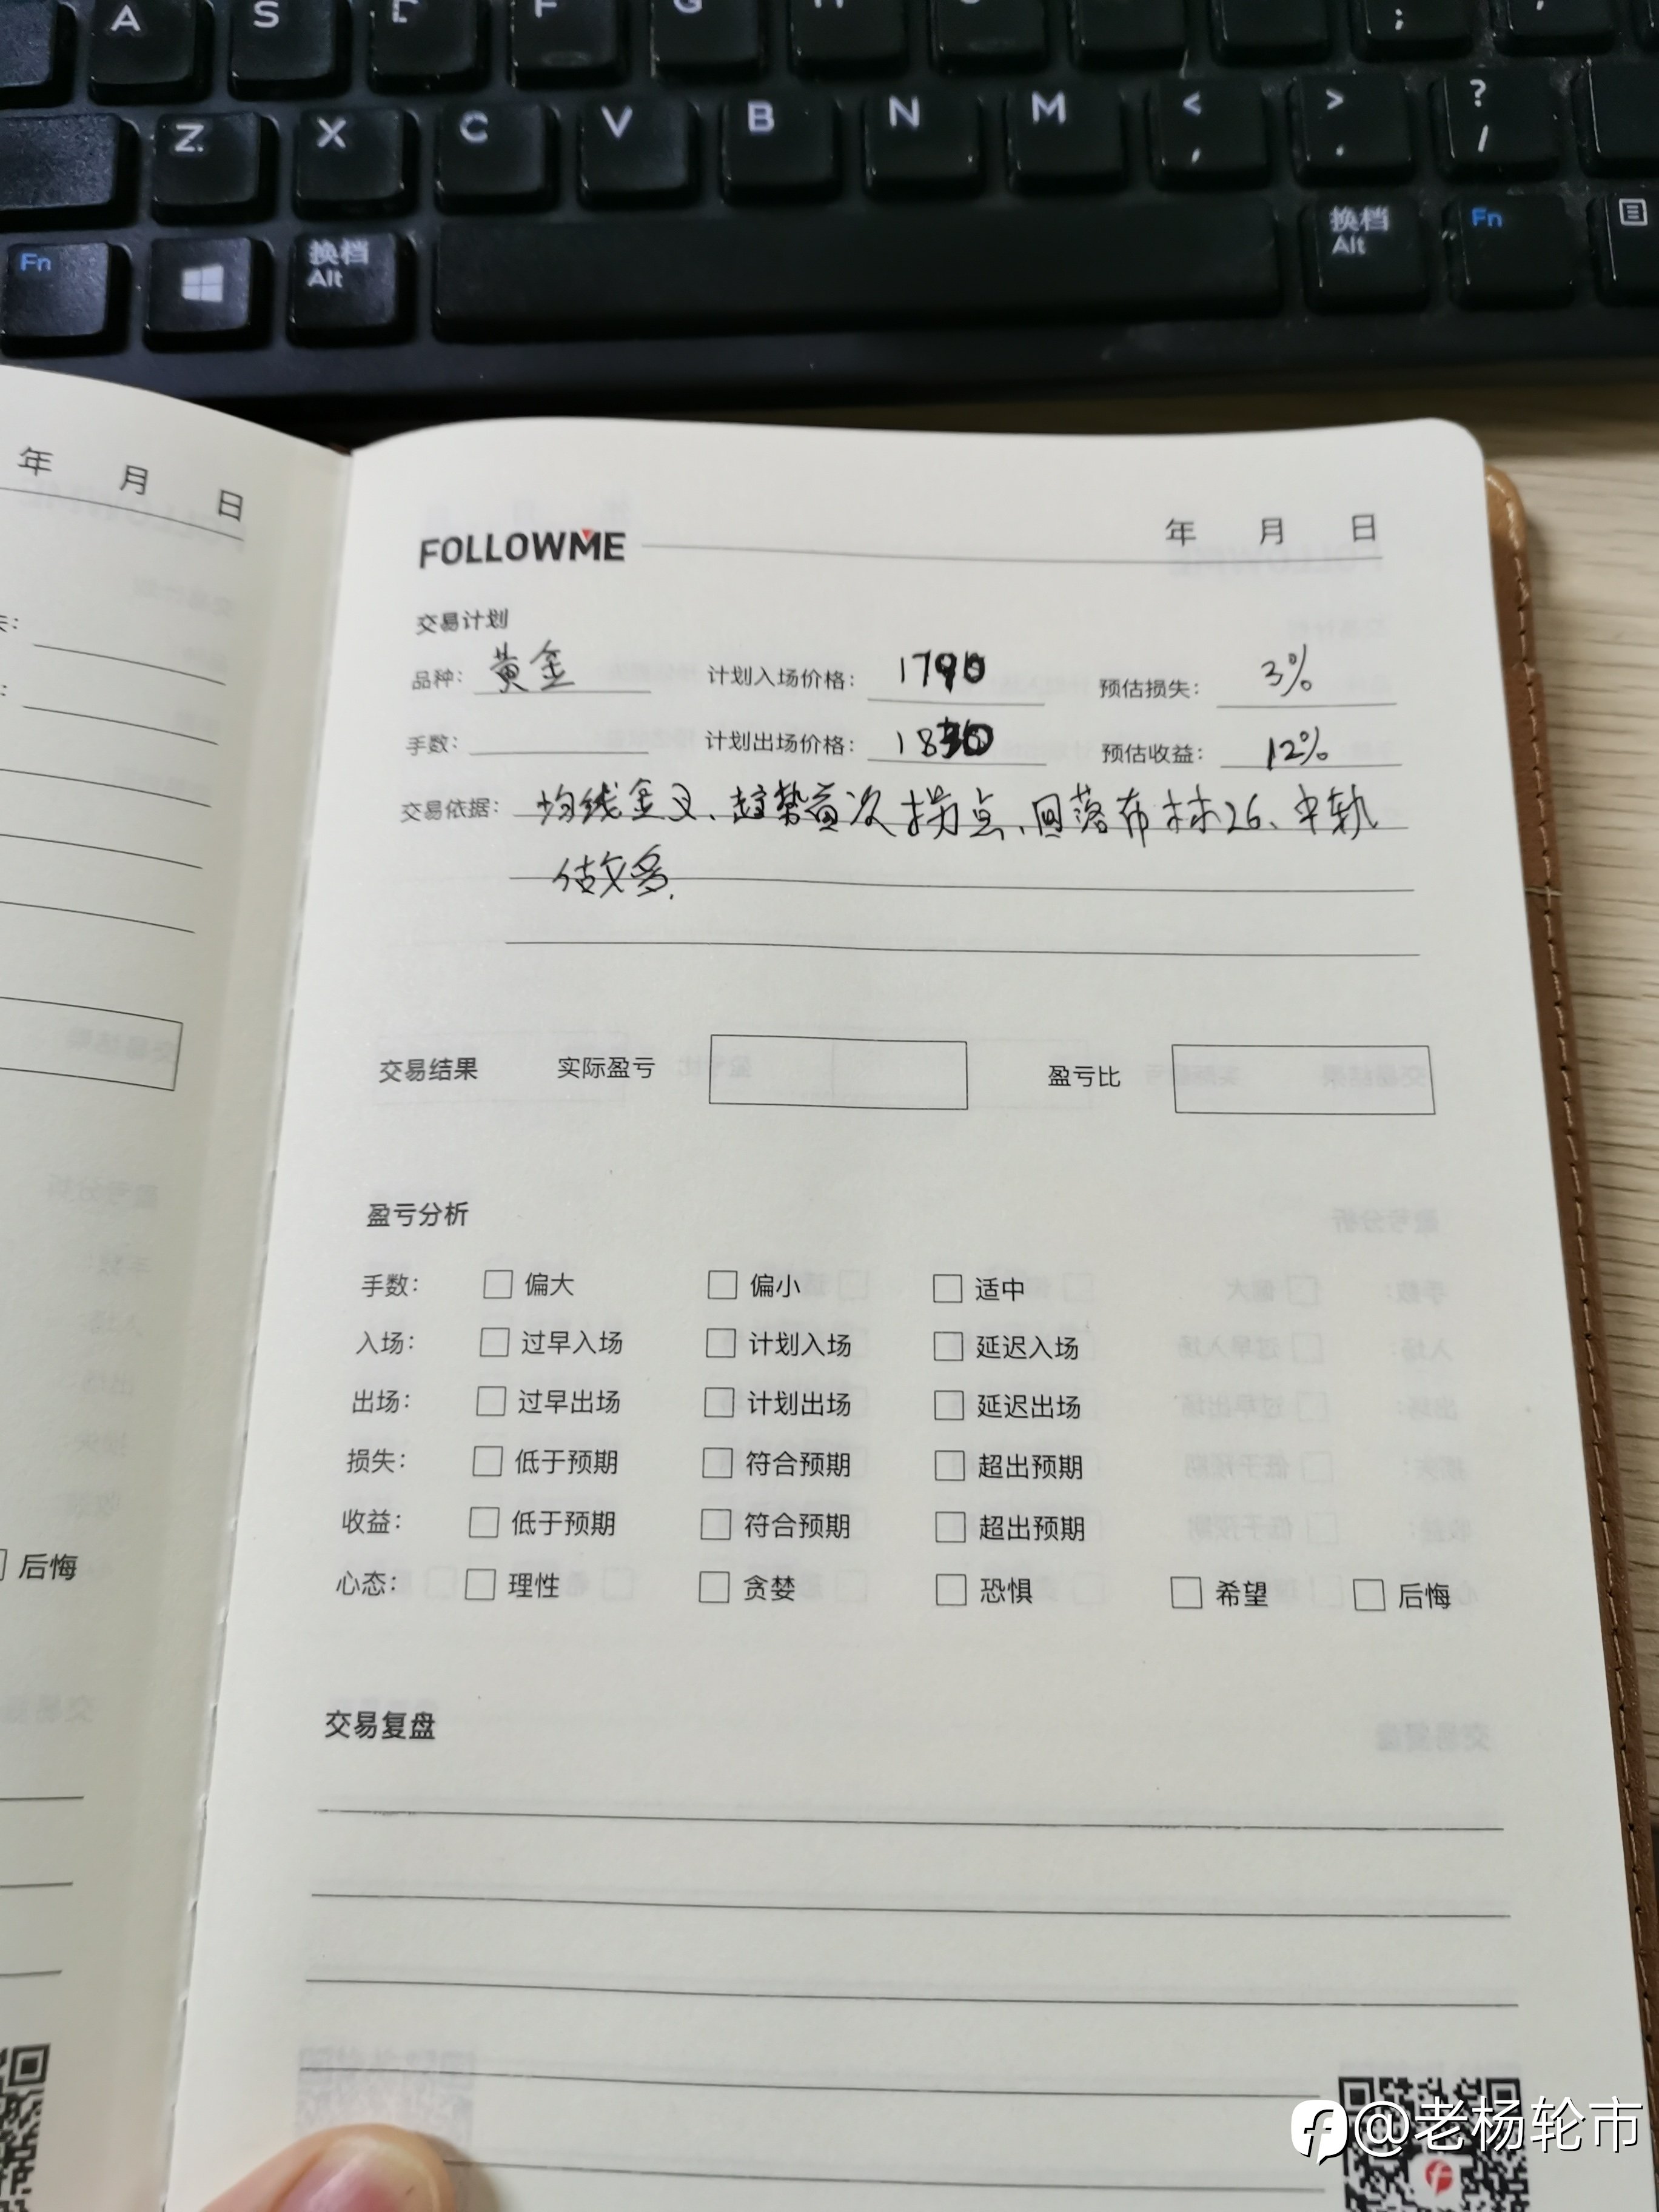 A S F G
Z X C V B N M < , > . ? /
Fn 换档 Alt 换档 Alt Fn
年 月 日
FOLLOWME 年 月 日
交易计划
品种: 黄金 计划入场价格: 1790 预估损失: 3%
手数: 计划出场价格: 1830 预估收益: 12%
交易依据: 均线金叉、趋势首次拐点、回落布林26、中轨
做多.
交易结果 实际盈亏 盈亏比
盈亏分析
手数: 偏大 偏小 适中
入场: 过早入场 计划入场 延迟入场
出场: 过早出场 计划出场 延迟出场
损失: 低于预期 符合预期 超出预期
收益: 低于预期 符合预期 超出预期
心态: 理性 贪婪 恐惧 希望 后悔
后悔
交易复盘
@老杨轮市